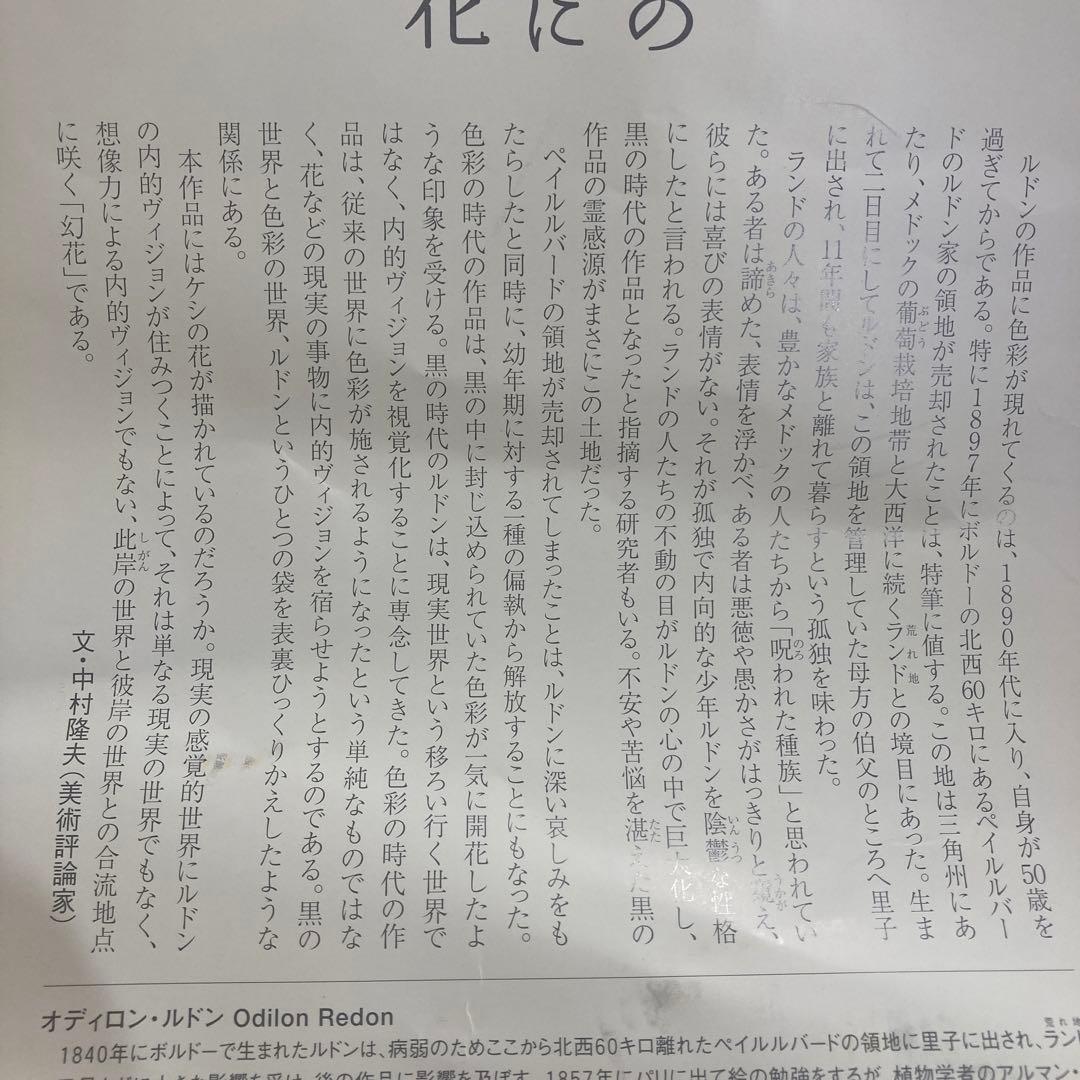 花にの
ルドンの作品に色彩が現れてくるのは、1890年代に入り、自身が50歳を
過ぎてからである。特に1897年にボルドーの北西60キロにあるペイルルバー
ドのルドン家の領地が売却されたことは、特筆に値する。この地は三角州にあ
たり、メドックの葡萄栽培地帯と大西洋に続くランドとの境目にあった。生ま
れて二日目にしてルドンは、この領地を管理していた母方の伯父のところへ里子
に出され、11年間も家族と離れて暮らすという孤独を味わった。
ランドの人々は、豊かなメドックの人たちから「呪われた種族」と思われてい
た。ある者は諦めた、表情を浮かべ、ある者は悪徳や愚かさがはっきりと窺え、
彼らには喜びの表情がない。それが孤独で内向的な少年ルドンを陰鬱な性格
にしたと言われる。ランドの人たちの不動の目がルドンの心の中で巨大化し、
黒の時代の作品となったと指摘する研究者もいる。不安や苦悩を湛えた黒の
作品の霊感源がまさにこの土地だった。
ペイルルバードの領地が売却されてしまったことは、ルドンに深い哀しみをも
たらしたと同時に、幼年期に対する一種の偏執から解放することにもなった。
色彩の時代の作品は、黒の中に封じ込められていた色彩が一気に開花したよ
うな印象を受ける。黒の時代のルドンは、現実世界という移ろい行く世界で
はなく、内的ヴィジョンを視覚化することに専念してきた。色彩の時代の作
品は、従来の世界に色彩が施されるようになったという単純なものではな
く、花などの現実の事物に内的ヴィジョンを宿らせようとするのである。黒の
世界と色彩の世界、ルドンというひとつの袋を表裏ひっくりかえしたような
関係にある。
本作品にはケシの花が描かれているのだろうか。現実の感覚的世界にルドン
の内的ヴィジョンが住みつくことによって、それは単なる現実の世界でもなく、
想像力による内的ヴィジョンでもない、此岸の世界と彼岸の世界との合流地点
に咲く「幻花」である。
文・中村隆夫（美術評論家）
オディロン・ルドン Odilon Redon
1840年にボルドーで生まれたルドンは、病弱のためここから北西60キロ離れたペイルルバードの領地に里子に出され、ラン
影響を受け、後の作品に影響を及ぼす。1857年にパリに出て絵の勉強をするが、植物学者のアルマン・